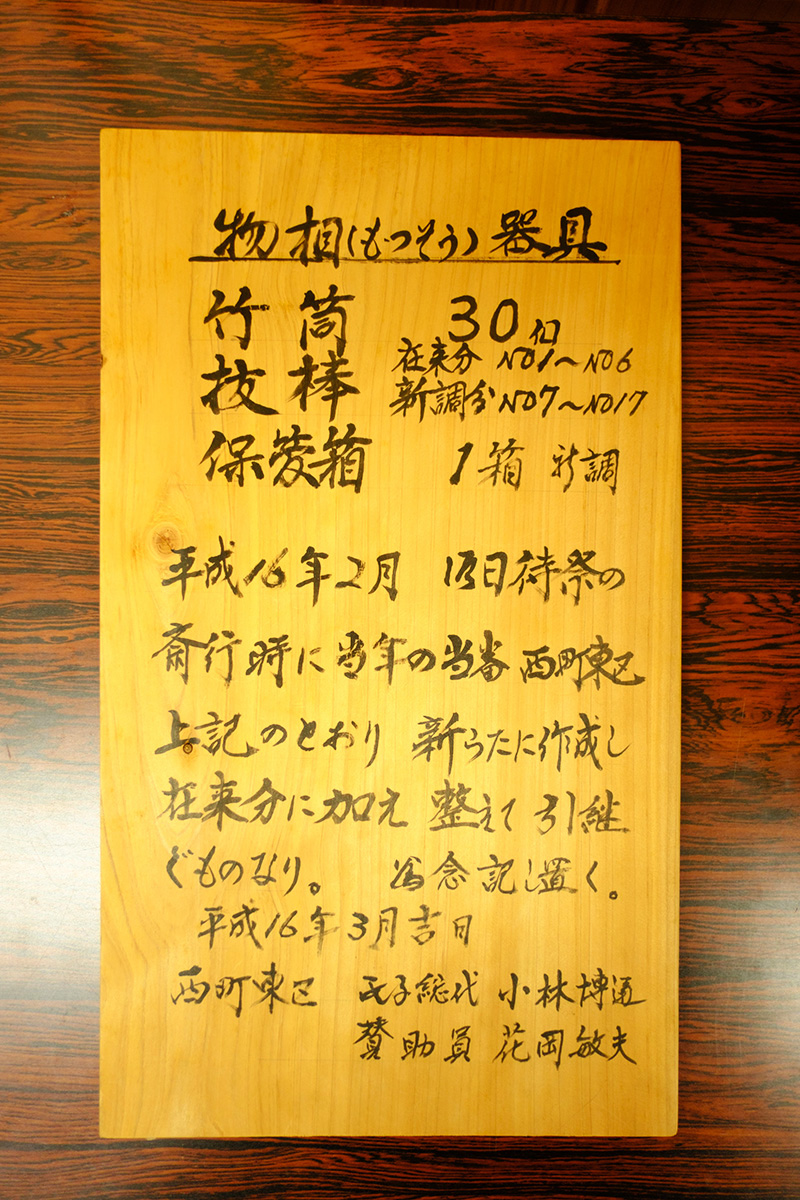 物相(もつそう)器具
竹筒 30個
抜棒 在来分 NO1〜NO6
新調分NO7〜NO17
保管箱 1箱 新調
平成16年2月 13日待祭の
斎行時に当年の当番 西町東区
上記のとおり 新らたに作成し
在来分に加え 整えて 引継
ぐものなり。 為念記し置く。
平成16年3月吉日
西町東区 氏子総代 小林博通
賛助員 花岡敏夫